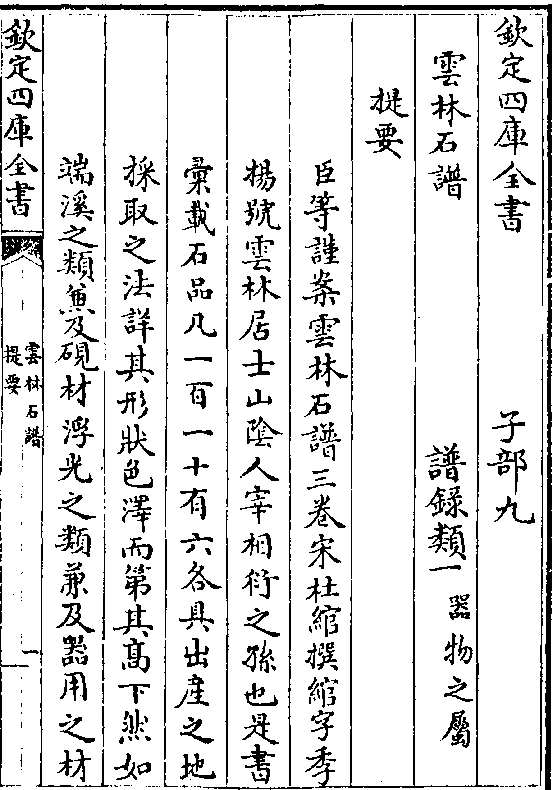 欽定四庫全書 子部九
雲林石譜 譜録類一器物之屬
提要
臣等謹案雲林石譜三卷宋杜綰撰綰字季
揚號雲林居士山陰人宰相衍之孫也是書
彚載石品凡一百一十有六各具出產之地
採取之法詳其形狀色澤而第其髙下然如
端溪之類兼及硯材浮光之類兼及器用之材
欽定四庫全書
雲林石譜
提要
一